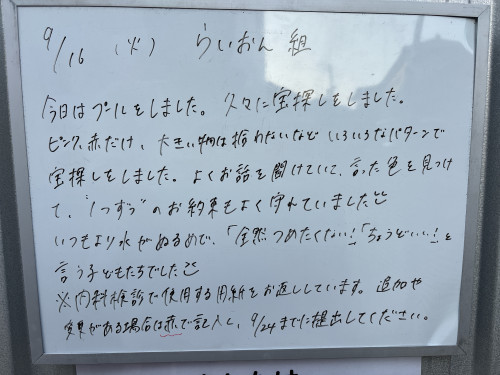 9/16 (火) らいおん 組
今日はプールをしました。久々に宝探しをしました。
ピンク、赤だけ、大きい物は拾わないなど いろいろなパターンで
宝探しをしました。よくお話を聞けていて、言った色を見つけ
て、"1つずつ"のお約束もよく守れていました
いつもより水がぬるめで、「全然つめたくない!」「ちょうどいい!」と
言う子どもたちでした
※内科検診で使用する用紙をお返ししています。追加や
変更がある場合は赤で記入し、9/24までに提出してください。